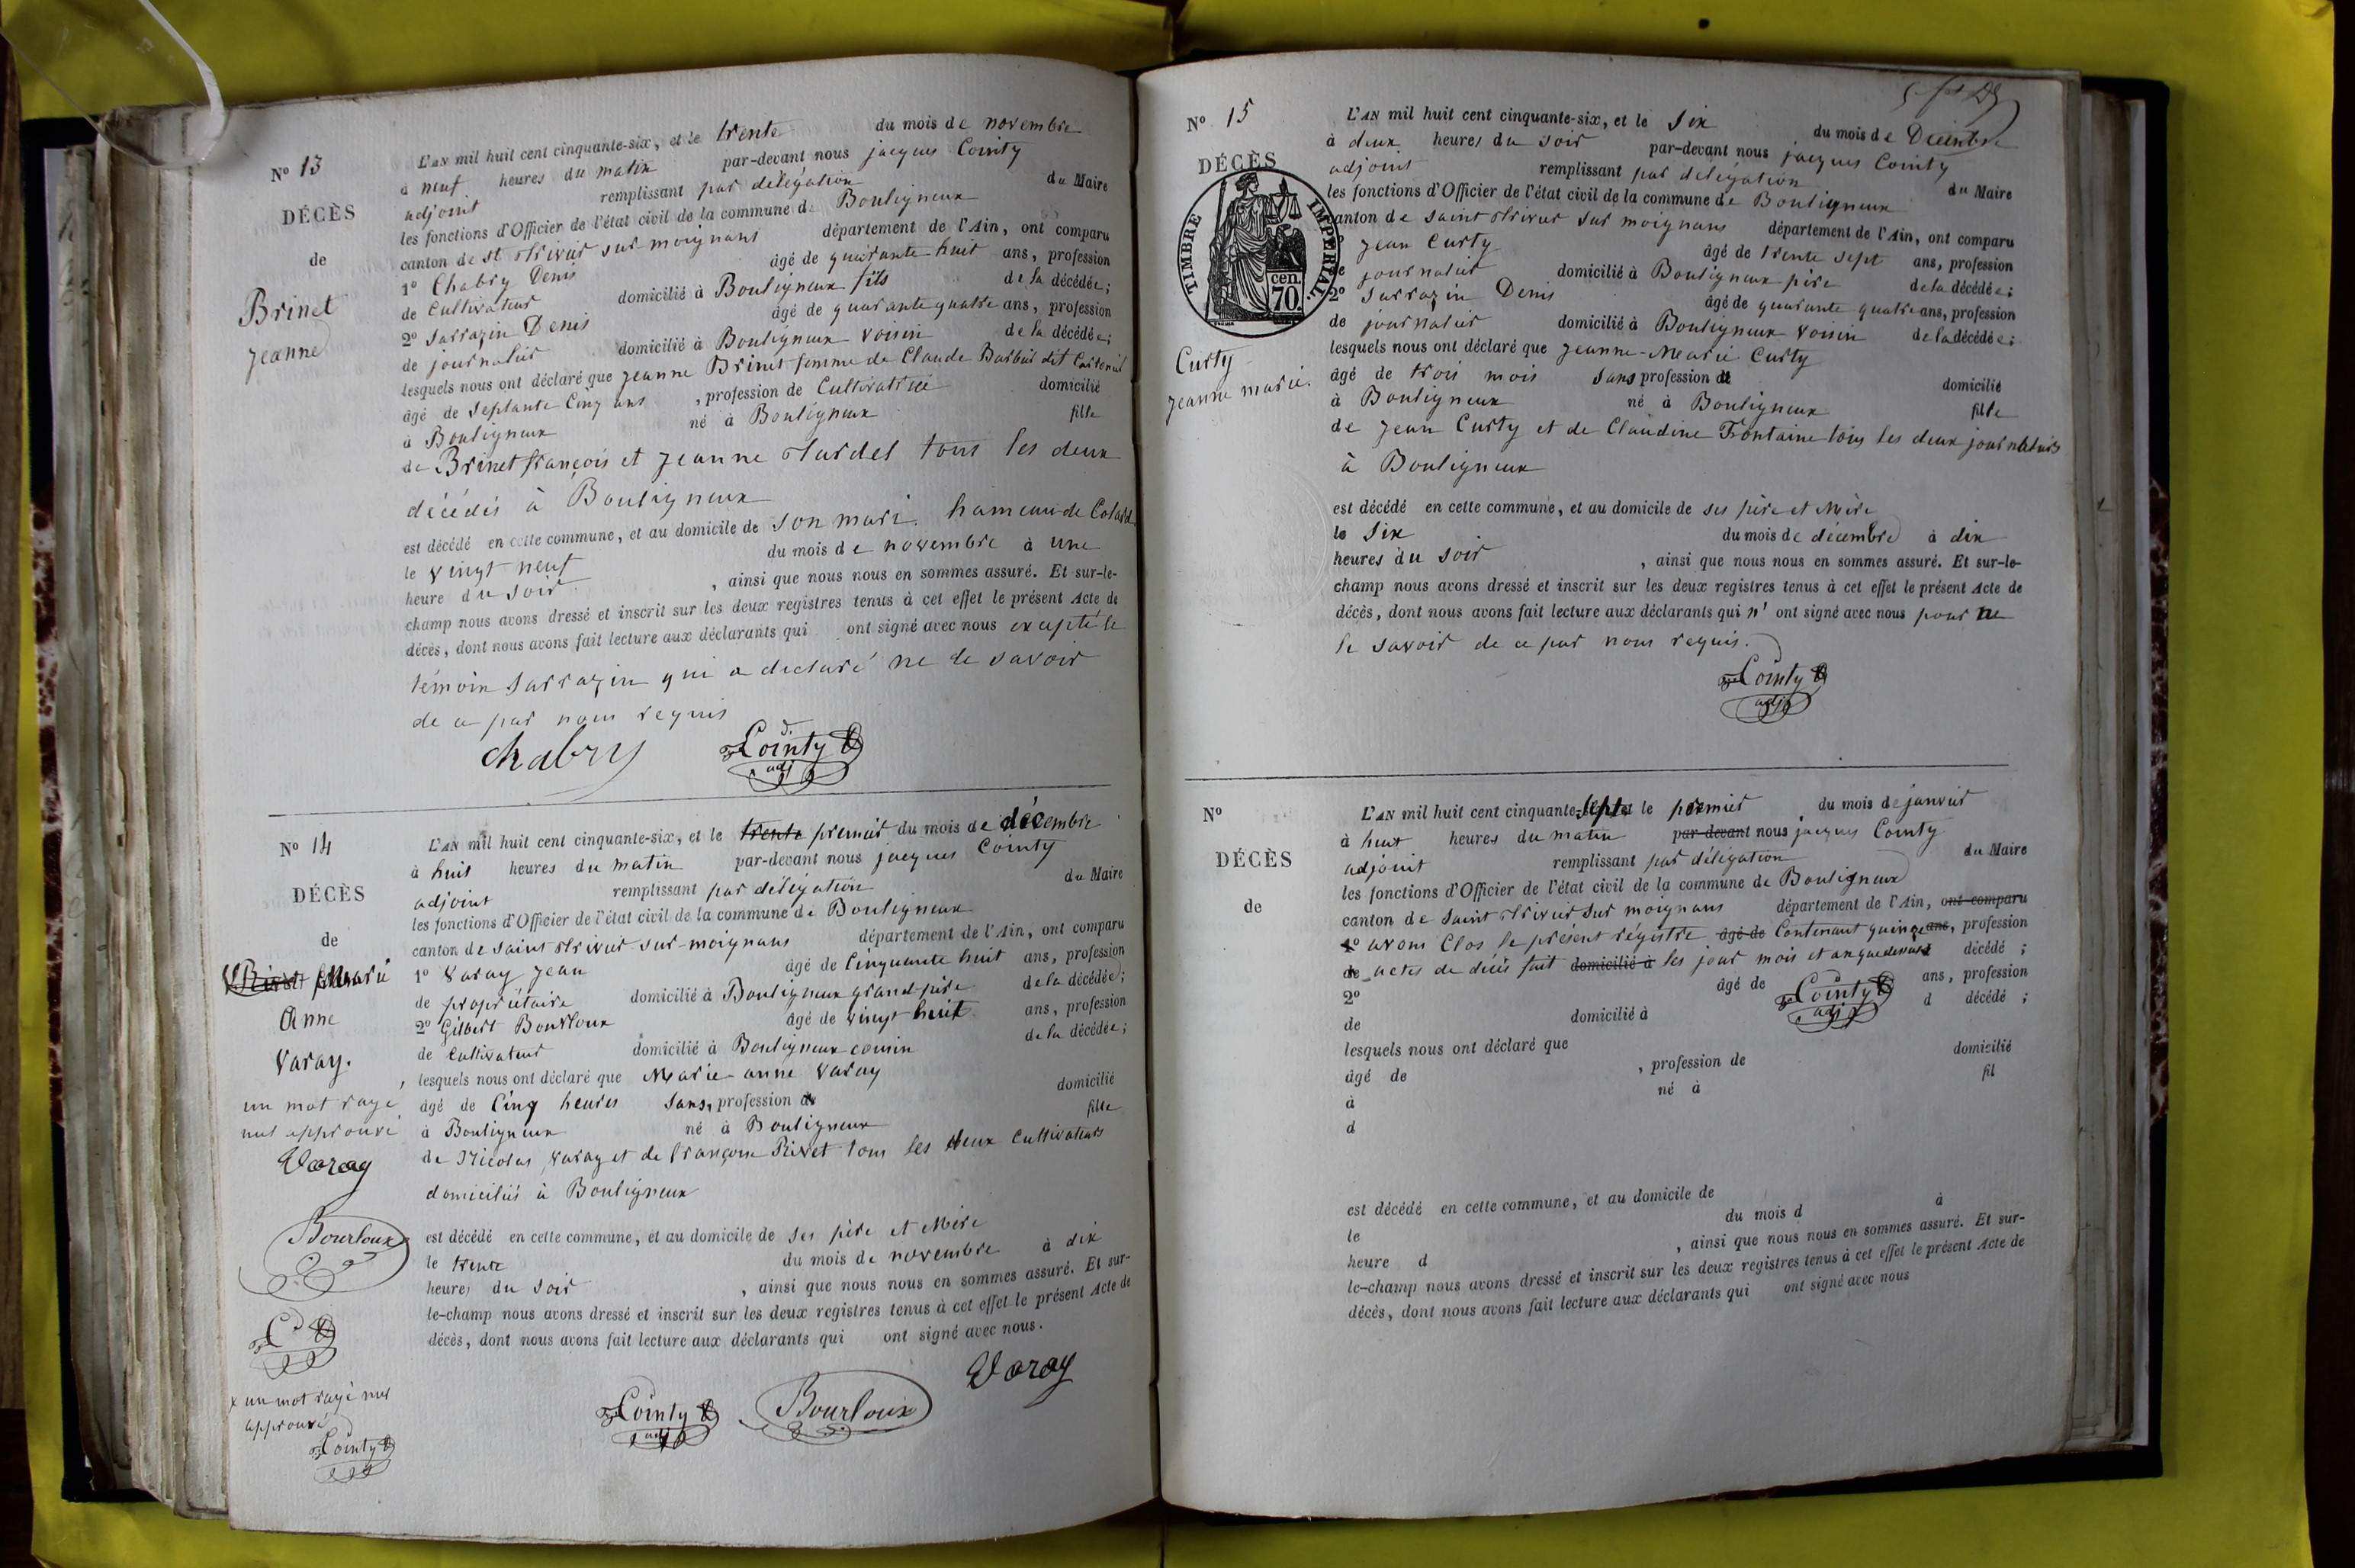 N° 13
DÉCÈS
de
Brinet
Jeanne
L'AN mil huit cent cinquante-six, et le trente du mois de novembre
à neuf heures du matin par-devant nous jacques Cointy
adjoint remplissant par délégation du Maire
les fonctions d'Officier de l'état civil de la commune de Bouligneux
canton de st trivier sur moignans département de l'Ain, ont comparu
1° Chabry Denis âgé de quarante huit ans, profession
de Cultivateur domicilié à Bouligneux fils de la décédée;
2° Sarrazin Denis âgé de quarante quatre ans, profession
de journalier domicilié à Bouligneux voisin de la décédée;
lesquels nous ont déclaré que Jeanne Brinet femme de Claude Barbet dit
âgé de septante Cinq ans , profession de Cultivatrice domicilié
à Bouligneux né à Bouligneux fille
de Brinet françois et Jeanne Tardel tous les deux
décédés à Bouligneux
est décédé en cette commune, et au domicile de son mari. hameau de
le vingt neuf du mois de novembre à une
heure du soir , ainsi que nous nous en sommes assuré. Et sur-le-
champ nous avons dressé et inscrit sur les deux registres tenus à cet effet le présent Acte de
décès, dont nous avons fait lecture aux déclarants qui ont signé avec nous excepté le
témoin Sarrazin qui a declaré ne le savoir
de ce par nous requis
chabry Cointy adj
N° 14
DÉCÈS
de
Marie
Anne
Varay.
un mot rayé
nul approuvé
Varay
Bourloux
x un mot rayé nul
approuvé
Cointy
L'AN mil huit cent cinquante-six, et le trente premier du mois de décembre
à huit heures du matin par-devant nous jacques Cointy
adjoint remplissant par délégation du Maire
les fonctions d'Officier de l'état civil de la commune de Bouligneux
canton de saint trivier sur-moignans département de l'Ain, ont comparu
1° Varay Jean âgé de Cinquante huit ans, profession
de propriétaire domicilié à Bouligneux grand-père de la décédée;
2° Gilbert Bourloux âgé de vingt huit ans, profession
de cultivateur domicilié à Bouligneux cousin de la décédée;
lesquels nous ont déclaré que Marie-anne Varay
âgé de Cinq heures Sans, profession de domicilié
à Bouligneux né à Bouligneux fille
de Nicolas varay et de françoise Rivet tous les deux Cultivateurs
domiciliés à Bouligneux
est décédé en cette commune, et au domicile de ses père et Mère
le trente du mois de novembre à dix
heures du soir , ainsi que nous nous en sommes assuré. Et sur-
le-champ nous avons dressé et inscrit sur les deux registres tenus à cet effet le présent Acte de
décès, dont nous avons fait lecture aux déclarants qui ont signé avec nous.
Cointy adj Bourloux Varay
N° 15
DÉCÈS
TIMBRE IMPERIAL.
cen. 70
Curty
Jeanne marie.
L'AN mil huit cent cinquante-six, et le Six du mois de Décembre
à deux heures du soir par-devant nous jacques Cointy
adjoint remplissant par délégation du Maire
les fonctions d'Officier de l'état civil de la commune de Bouligneux
canton de saint trivier sur moignans département de l'Ain, ont comparu
Jean Curty âgé de trente sept ans, profession
de journalier domicilié à Bouligneux père de la décédée;
2° Sarrazin Denis âgé de quarante quatre ans, profession
de journalier domicilié à Bouligneux voisin de la décédée;
lesquels nous ont déclaré que Jeanne-Marie Curty
âgé de trois mois sans profession de domicilié
à Bouligneux né à Bouligneux fille
de Jean Curty et de Claudine Fontaine tous les deux journaliers
à Bouligneux
est décédé en cette commune, et au domicile de ses père et Mère
le Six du mois de décembre à dix
heures du soir , ainsi que nous nous en sommes assuré. Et sur-le-
champ nous avons dressé et inscrit sur les deux registres tenus à cet effet le présent Acte de
décès, dont nous avons fait lecture aux déclarants qui n'ont signé avec nous pour ne
le savoir de ce par nous requis.
Cointy adj
N°
DÉCÈS
de
L'AN mil huit cent cinquante-sept et le premier du mois de janvier
à huit heures du matin par-devant nous jacques Cointy
adjoint remplissant par délégation du Maire
les fonctions d'Officier de l'état civil de la commune de Bouligneux
canton de saint trivier sur moignans département de l'Ain, ont comparu
1° avons Clos le présent régistre âgé de Contenant quinze ans, profession
de actes de décès fait domicilié à les jour mois et an que dessus décédé ;
2° âgé de Cointy adj ans, profession
de domicilié à d décédé ;
lesquels nous ont déclaré que
âgé de , profession de domicilié
à né à fil
d
est décédé en cette commune, et au domicile de
le du mois d à
heure d , ainsi que nous nous en sommes assuré. Et sur-
le-champ nous avons dressé et inscrit sur les deux registres tenus à cet effet le présent Acte de
décès, dont nous avons fait lecture aux déclarants qui ont signé avec nous